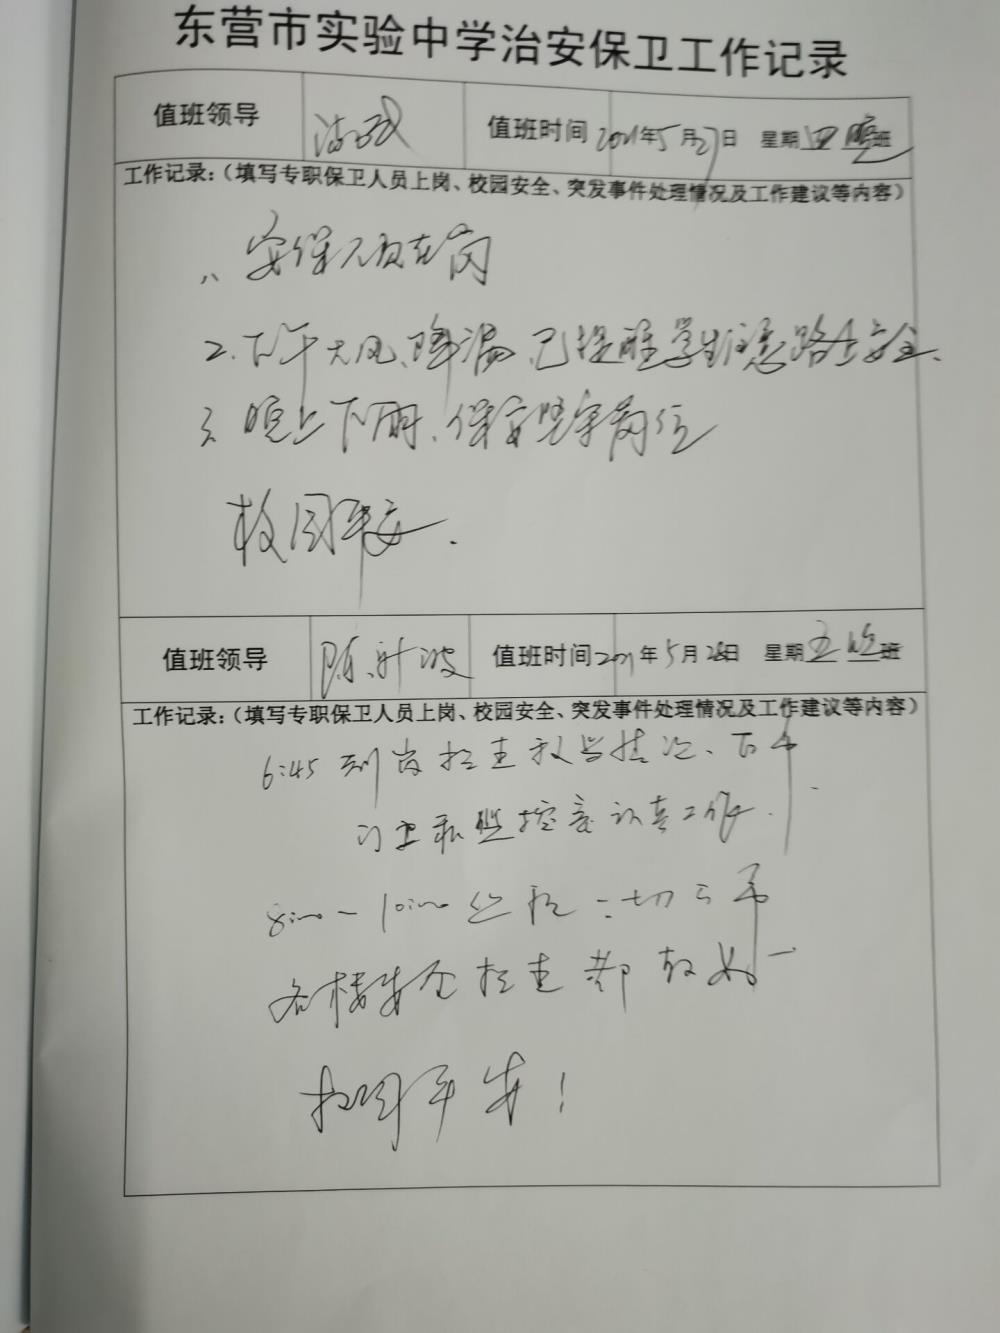 东营市实验中学治安保卫工作记录
值班领导 值班时间 2021年5月27日 星期四 晚班
工作记录：（填写专职保卫人员上岗、校园安全、突发事件处理情况及工作建议等内容）
1、安保人员在岗
2、下午大风、降温，已提醒学生注意路上安全、
3、晚上下雨、保安坚守岗位
校园平安．
值班领导 陈新波 值班时间 2021年5月28日 星期五 晚班
工作记录：（填写专职保卫人员上岗、校园安全、突发事件处理情况及工作建议等内容）
6:45 到岗检查 情况、下午
门卫和监控室认真工作．
8:00－10:00 巡查 一切正常
各楼安全检查都
校园平安！